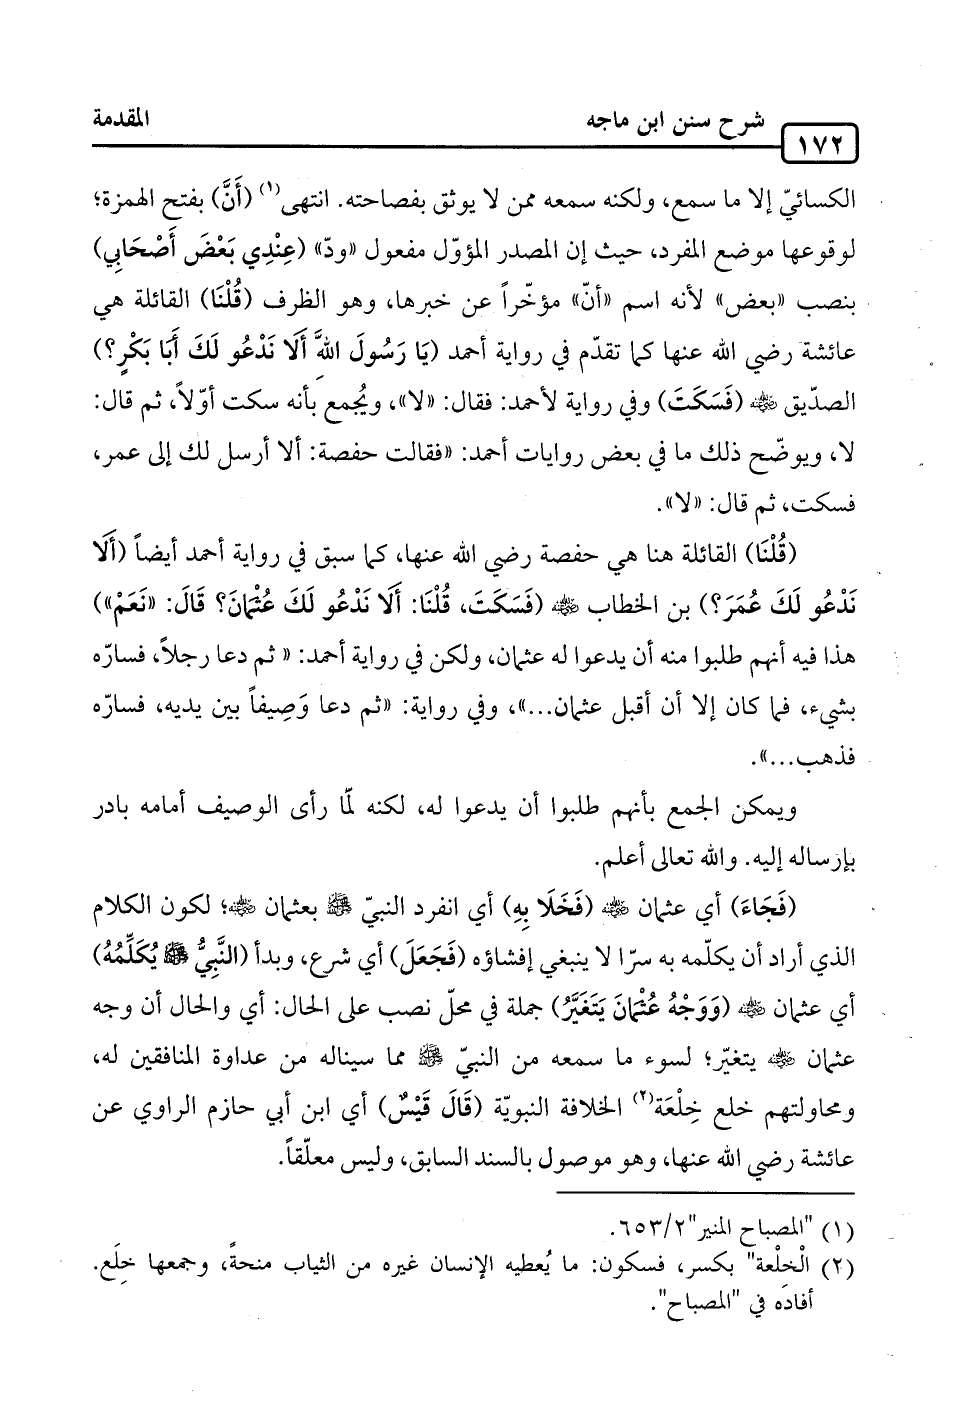 شرح سنن ابن ماجه
المقدمة
١٧٢
الكسائيّ إلا ما سمع، ولكنه سمعه ممن لا يوثق بفصاحته. انتهى(١) (أَنَّ) بفتح الهمزة؛
لوقوعها موضع المفرد، حيث إن المصدر المؤوّل مفعول «ودّ» (عِنْدِي بَعْضَ أَصْحَابِي)
بنصب «بعض» لأنه اسم «أنّ» مؤخّراً عن خبرها، وهو الظرف (قُلْنَا) القائلة هي
عائشة رضي الله عنها كما تقدّم في رواية أحمد (يَا رَسُولَ اللهِ أَلَا نَدْعُو لَكَ أَبَا بَكْرٍ؟)
الصدّيق رضي الله عنه (فَسَكَتَ) وفي رواية لأحمد: فقال: «لا»، ويُجمع بأنه سكت أوّلاً، ثم قال:
لا، ويوضّح ذلك ما في بعض روايات أحمد: «فقالت حفصة: ألا أرسل لك إلى عمر،
فسكت، ثم قال: «لا».
(قُلْنَا) القائلة هنا هي حفصة رضي الله عنها، كما سبق في رواية أحمد أيضاً (أَلَا
نَدْعُو لَكَ عُمَرَ؟) بن الخطاب رضي الله عنه (فَسَكَتَ، قُلْنَا: أَلَا نَدْعُو لَكَ عُثْمَانَ؟ قَالَ: «نَعَمْ»)
هذا فيه أنهم طلبوا منه أن يدعوا له عثمان، ولكن في رواية أحمد: «ثم دعا رجلاً، فسارّه
بشيء، فما كان إلا أن أقبل عثمان...»، وفي رواية: «ثم دعا وَصِيفاً بين يديه، فسارّه
فذهب...».
ويمكن الجمع بأنهم طلبوا أن يدعوا له، لكنه لمّا رأى الوصيف أمامه بادر
بإرساله إليه. والله تعالى أعلم.
(فَجَاءَ) أي عثمان رضي الله عنه (فَخَلَا بِهِ) أي انفرد النبيّ ﷺ بعثمان رضي الله عنه؛ لكون الكلام
الذي أراد أن يكلّمه به سرّا لا ينبغي إفشاؤه (فَجَعَلَ) أي شرع، وبدأ (النَّبِيُّ ﷺ يُكَلِّمُهُ)
أي عثمان رضي الله عنه (وَوَجْهُ عُثْمَانَ يَتَغَيَّرُ) جملة في محلّ نصب على الحال: أي والحال أن وجه
عثمان رضي الله عنه يتغيّر؛ لسوء ما سمعه من النبيّ ﷺ مما سيناله من عداوة المنافقين له،
ومحاولتهم خلع خِلْعَة(٢) الخلافة النبويّة (قَالَ قَيْسٌ) أي ابن أبي حازم الراوي عن
عائشة رضي الله عنها، وهو موصول بالسند السابق، وليس معلّقاً.
(١) "المصباح المنير" ٦٥٣/٢.
(٢) الْخِلْعة" بكسر، فسكون: ما يُعطيه الإنسان غيره من الثياب منحةً، وجمعها خِلَع.
أفاده في "المصباح".